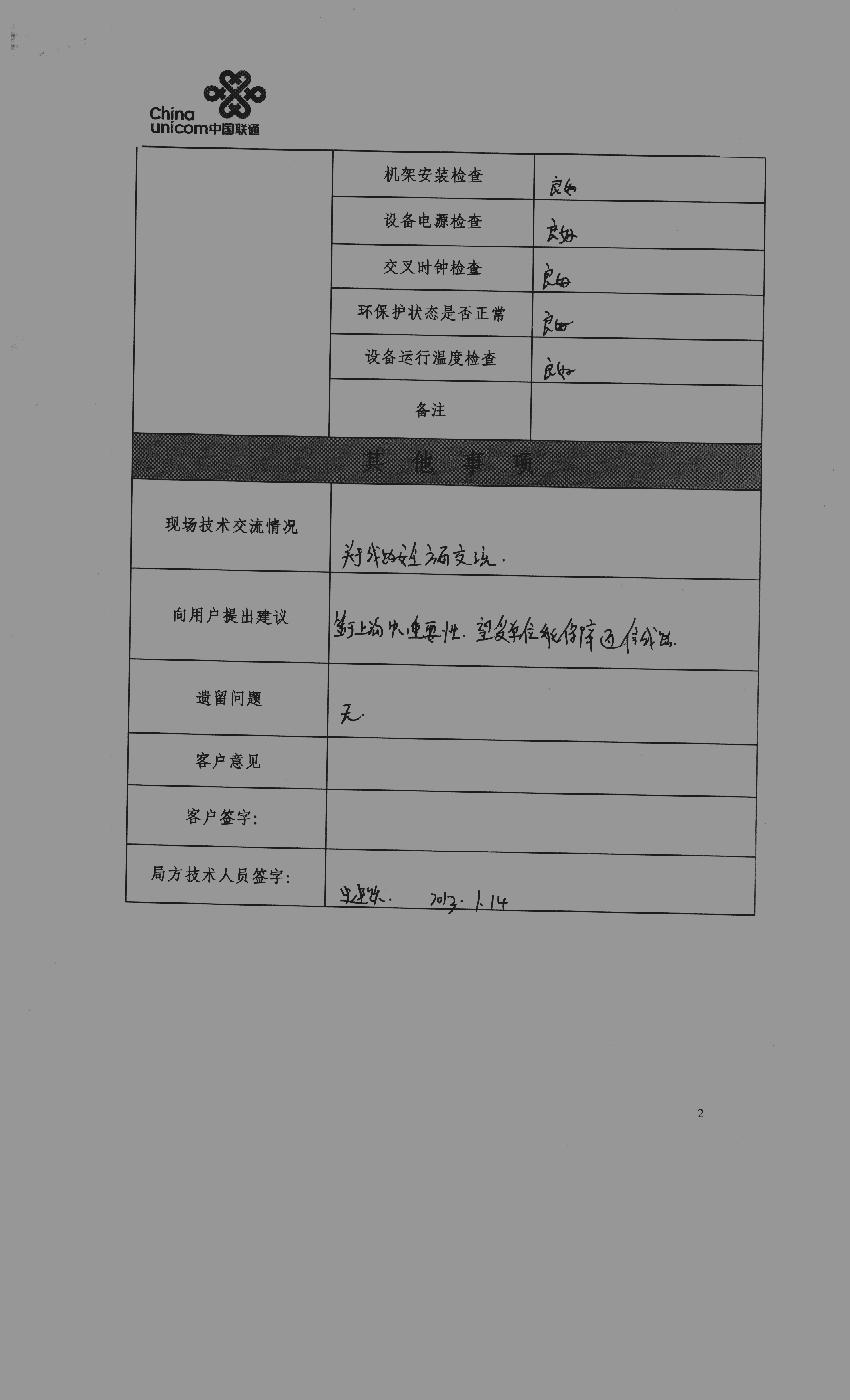 China
unicom中国联通
机架安装检查 良好
设备电源检查 良好
交叉时钟检查 良好
环保护状态是否正常 良好
设备运行温度检查 良好
备注
其他事项
现场技术交流情况 关于线路安全方面交流.
向用户提出建议 重要性. 望贵单位能保障通信线路.
遗留问题 无.
客户意见
客户签字:
局方技术人员签字: 2013.1.14
2